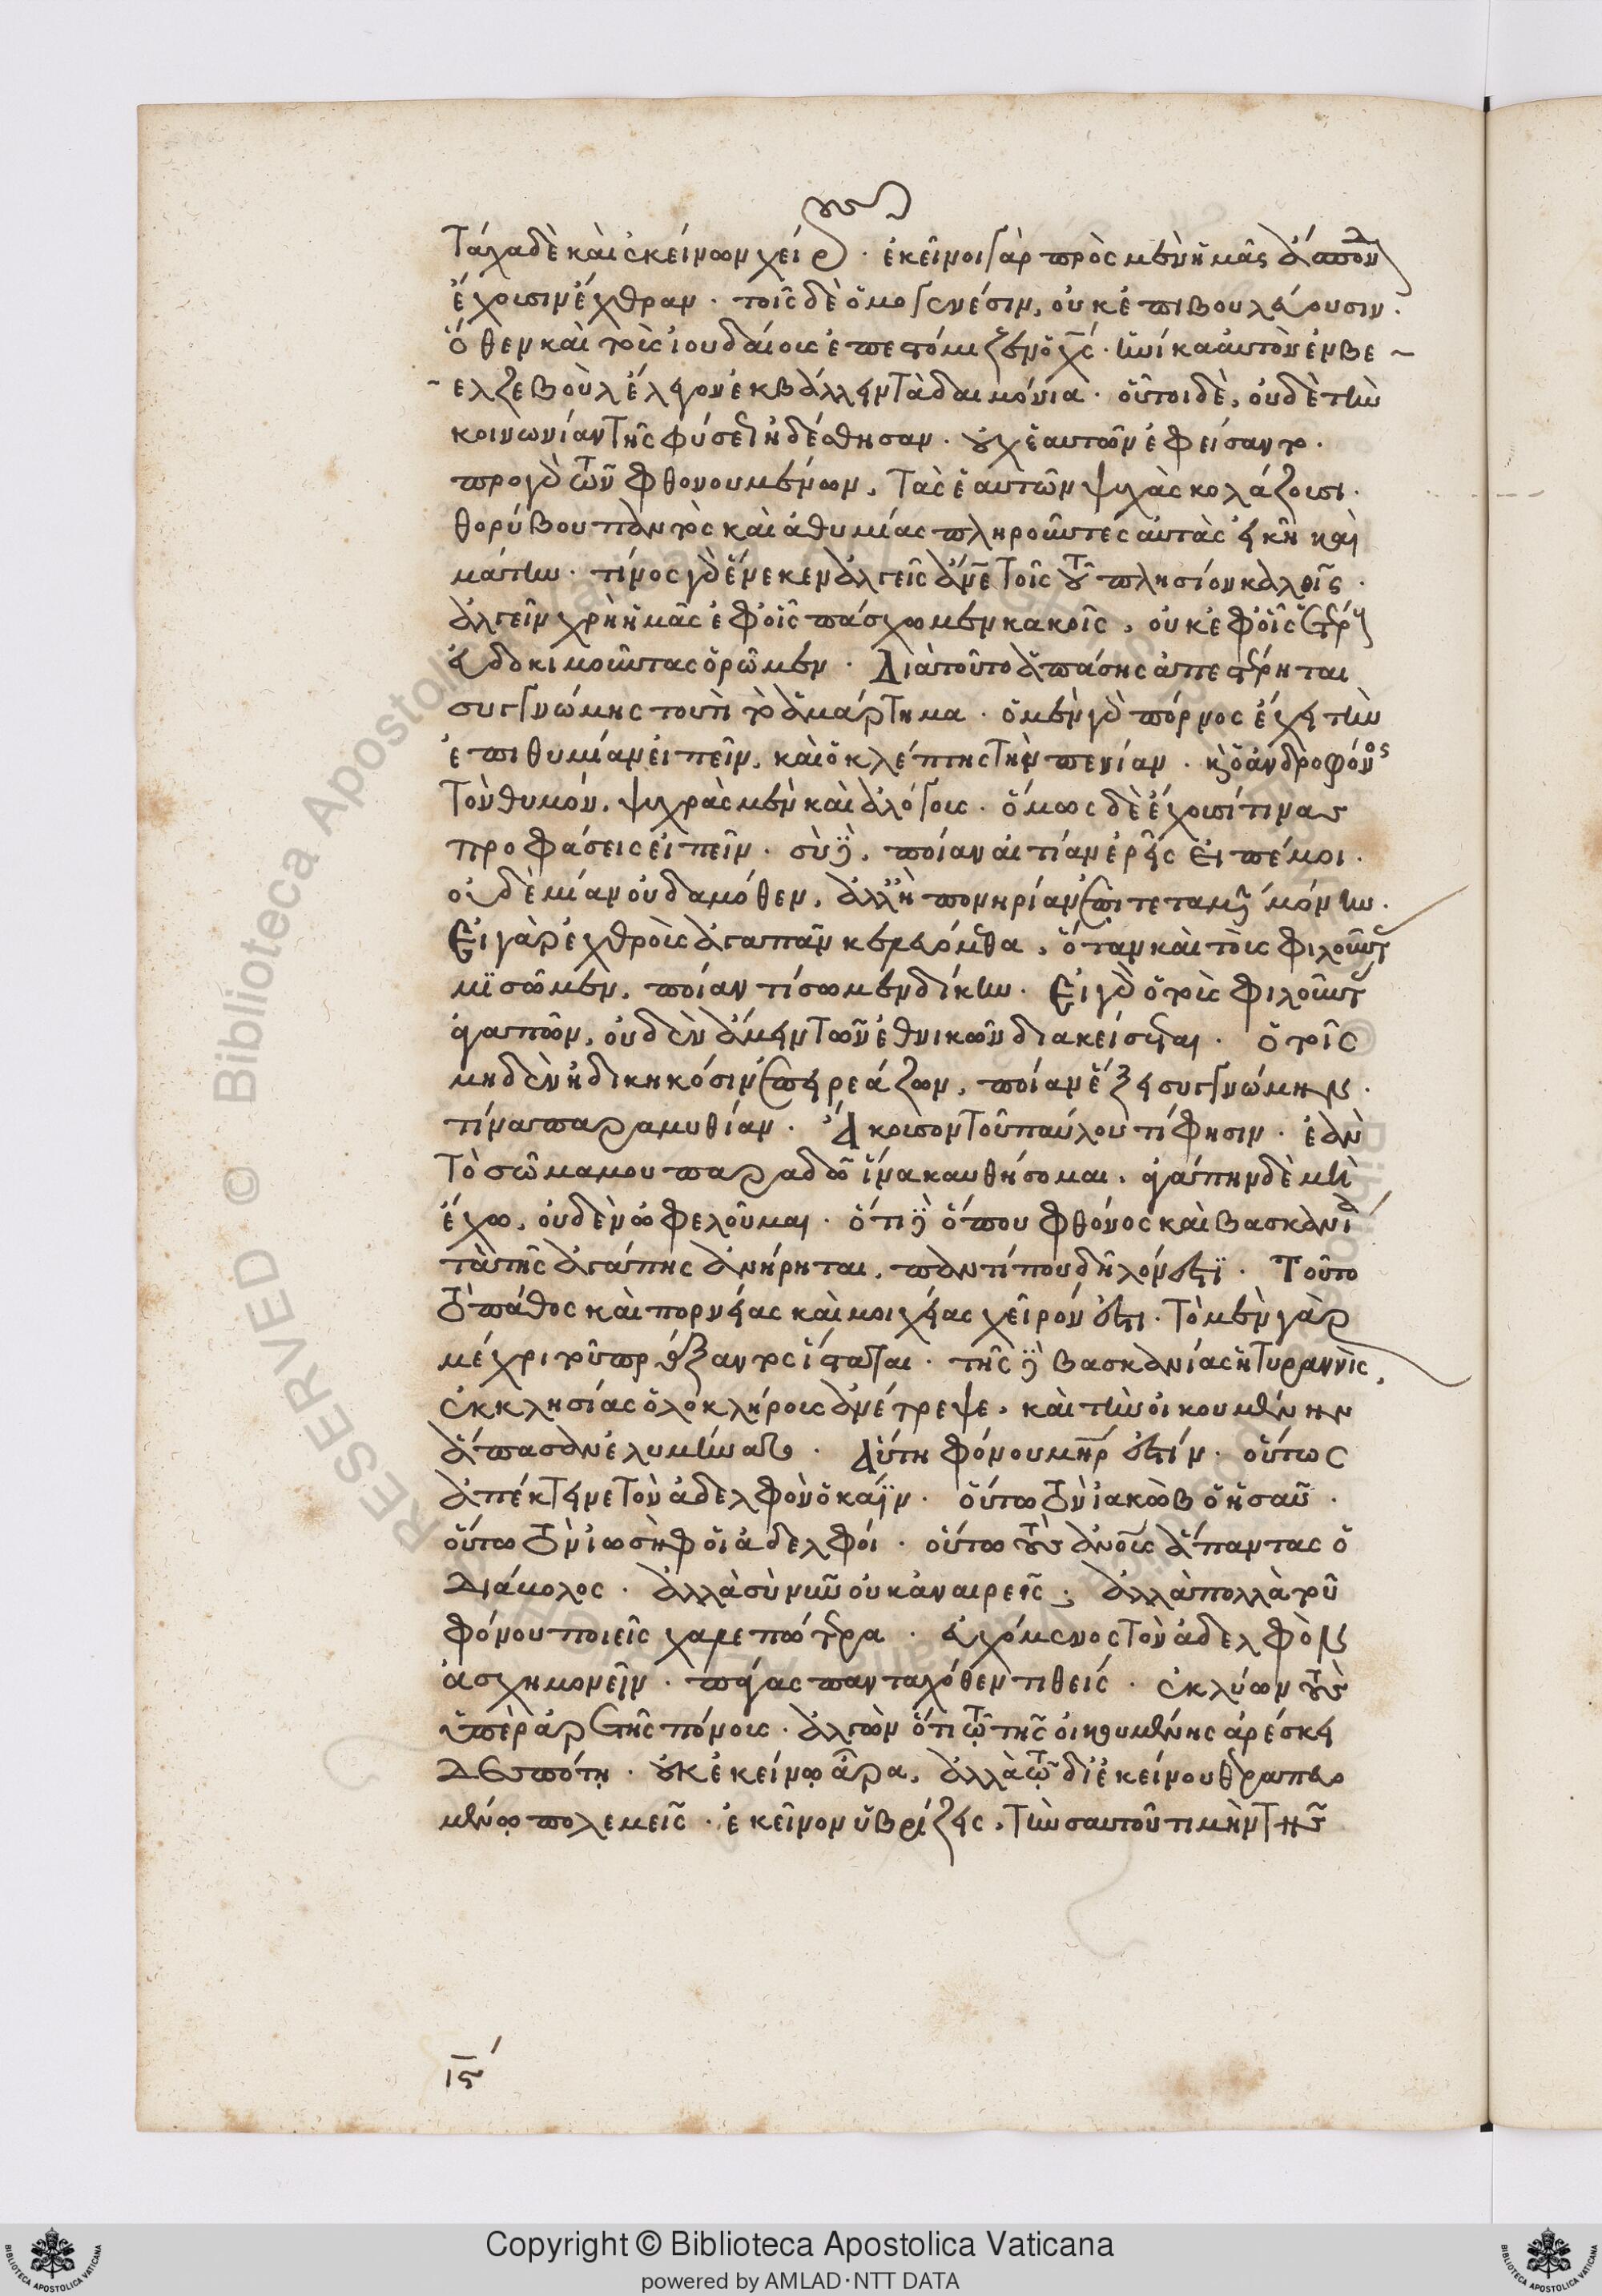 τάχα δὲ καὶ ἐκείνων χείρους. ἐκεῖνοι γὰρ πρὸς μὲν ἡμᾶς ἄσπονδον
ἔχουσιν ἔχθραν. τοῖς δὲ ὁμογενέσιν, οὐκ ἐπιβουλεύουσιν.
ὅθεν καὶ τοὺς ἰουδαίους ἐπεστόμιζεν ὁ χς. ἡνίκα αὐτὸν ἐν βε
ελζεβοὺλ ἔλεγον ἐκβάλλειν τὰ δαιμόνια. οὗτοι δὲ, οὐδὲ τὴν
κοινωνίαν τῆς φύσεως ἠδέσθησαν. οὐχ ἑαυτῶν ἐφείσαντο.
πρὸ γὰρ τῶν φθονουμένων, τὰς ἑαυτῶν ψυχὰς κολάζουσι.
θορύβου παντὸς καὶ ἀθυμίας πληροῦντες αὐτὰς εἰκῆ καὶ
μάτην. τίνος γὰρ ἕνεκεν ἀλγεῖς ἄνε τοῖς τοῦ πλησίον καλοῖς.
ἀλγεῖν χρὴ ἡμᾶς ἐφ' οἷς πάσχωμεν κακοῖς, οὐκ ἐφ' οἷς ἑτέρους
εὐδοκιμοῦντας ὁρῶμεν. Διὰ τοῦτο ἁπάσης ἀπεστέρηται
συγγνώμης τουτὶ τὸ ἁμάρτημα. ὁ μὲν γὰρ πόρνος ἔχει τὴν
ἐπιθυμίαν εἰπεῖν, καὶ ὁ κλέπτης τὴν πενίαν. καὶ ὁ ἀνδροφόνος
τὸν θυμόν, ψυχρὰς μὲν καὶ ἀλόγους. ὅμως δὲ ἔχουσί τινας
προφάσεις εἰπεῖν. σὺ δὲ, ποίαν αἰτίαν ἐρεῖς εἰπέ μοι.
οὐδεμίαν οὐδαμόθεν, ἀλλ' ἢ πονηρίαν ἐπιτεταμένην μόνην.
Εἰ γὰρ ἐχθροὺς ἀγαπᾶν κελευόμεθα, ὅταν καὶ τοὺς φιλοῦντας
μισῶμεν, ποίαν τίσωμεν δίκην. Εἰ γὰρ ὁ τοὺς φιλοῦντας
ἀγαπῶν, οὐδὲν ἄμεινον τῶν ἐθνικῶν διακείσεται. ὁ τοῖς
μηδὲν ἠδικηκόσιν ἐπηρεάζων, ποίαν ἕξει συγγνώμην.
τίνα παραμυθίαν. Ἄκουσον τοῦ παύλου τί φησιν. ἐὰν
τὸ σῶμα μου παραδῶ ἵνα καυθήσομαι, ἀγάπην δὲ μὴ
ἔχω, οὐδὲν ὠφελοῦμαι. ὅτι δὲ ὅπου φθόνος καὶ βασκανία
τὰ τῆς ἀγάπης ἀνήρηται, παντί που δῆλόν ἐστϊ. Τοῦτο
τὸ πάθος καὶ πορνείας καὶ μοιχείας χεῖρόν ἐστι. τὸ μὲν γὰρ
μέχρι τοῦ πράξαντος ἵσταται. τῆς δὲ βασκανίας ἡ τυραννὶς,
ἐκκλησίας ὁλοκλήρους ἀνέτρεψε, καὶ τὴν οἰκουμένην
ἅπασαν ἐλυμήνατο. Αὕτη φόνου μηρ ἐστίν. οὕτως
ἀπέκτεινε τὸν ἀδελφὸν ὁ κάϊν. οὕτω τὸν ἰακὼβ ὁ ἡσαῦ.
οὕτω τὸν ἰωσὴφ οἱ ἀδελφοί. οὕτω τοὺς ἀνους ἅπαντας ὁ
Διάβολος. ἀλλὰ σὺ νῦν οὐκ ἀναιρεῖς; ἀλλὰ πολλὰ τοῦ
φόνου ποιεῖς χαλεπώτερα. εὐχόμενος τὸν ἀδελφὸν
ἀσχημονεῖν. παγίας πανταχόθεν τιθείς. ἐκλύων τοὺς
ὑπὲρ ἀρετῆς πόνους. ἀλγῶν ὅτι τῷ τῆς οἰκουμένης ἀρέσκει
Δεσπότῃ. οὐκ ἐκείνῳ ἄρα, ἀλλὰ τῷ δι' ἐκείνου θεραπευο
μένῳ πολεμεῖς. ἐκεῖνον ὑβρίζεις, τὴν σαυτοῦ τιμὴν τῆς
ις'